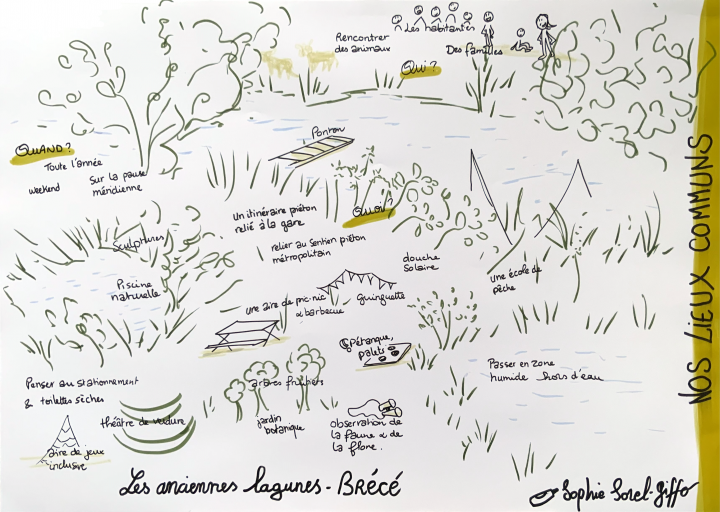 Rencontrer
des animaux
Les habitantes
Des familles
QUI ?
QUAND ?
Toute l'année
weekend
Sur la pause
méridienne
Ponton
QUOI ?
un itinéraire piéton
relié à la gare
relier au sentier piéton
métropolitain
Sculptures
Piscine
naturelle
douche
Solaire
une école de
pêche
une aire de pic-nic
& barbecue
Guinguette
Pétanque,
palets
Passer en zone
humide hors d'eau
Penser au stationnement
& toilettes sèches
théâtre de verdure
aire de jeux
inclusive
arbres fruitiers
jardin
botanique
observation de
la faune & de
la flore.
NOS LIEUX COMMUNS
Les anciennes lagunes - BRÉCÉ
Sophie Sorel-Giffo